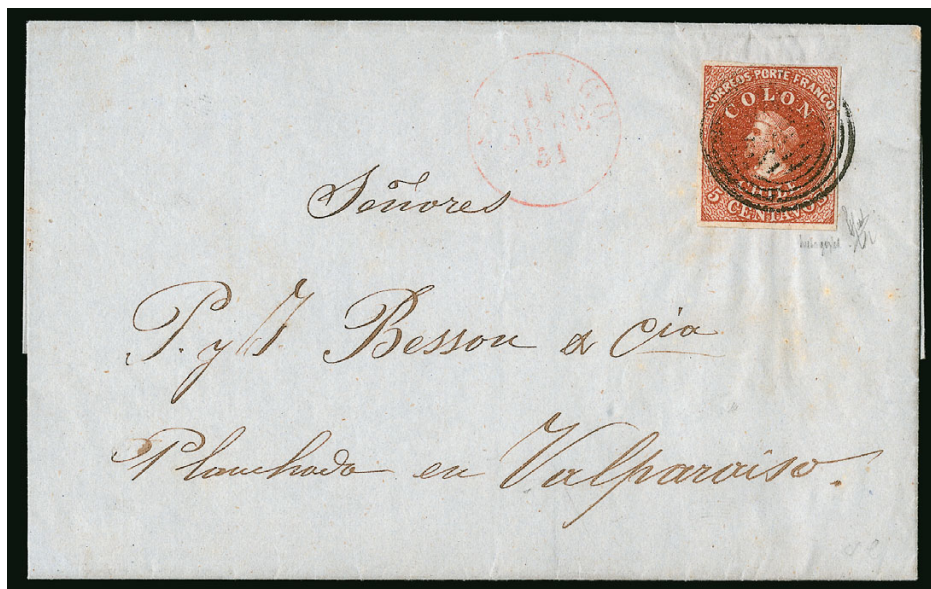 CORREOS·PORTE FRANCO
COLON
CHILE
5 CENTAVOS
51
Señores
P. y J. Besson & Cia
Planchada en Valparaiso.